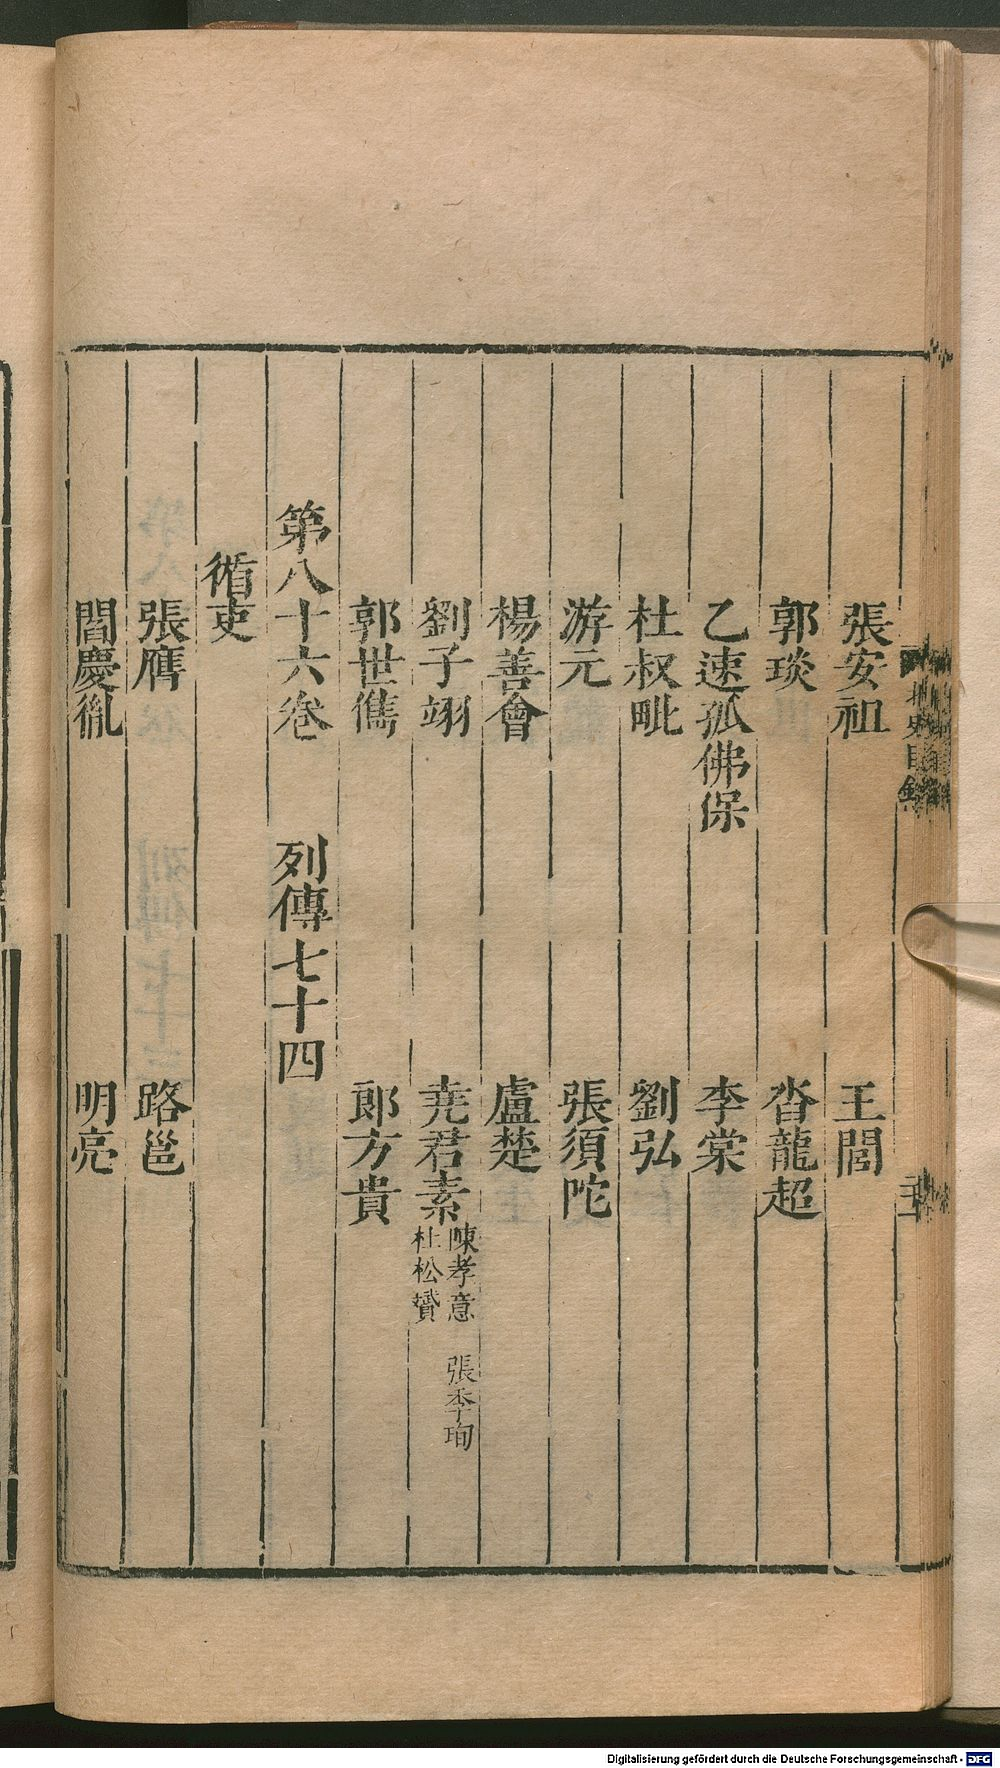 張安祖　王閭
郭琰　沓龍超
乙速孤佛保　李棠
杜叔毗　劉弘
游元　張須陀
楊善會　盧楚
劉子翊　尭君素 陳孝意　張季珣
杜松贇
郭世儁　郎方貴
第八十六卷　列傳七十四
循吏
張膺　路邕
閻慶胤　明亮
北史目錄
Digitalisierung gefördert durch die Deutsche Forschungsgemeinschaft - DFG